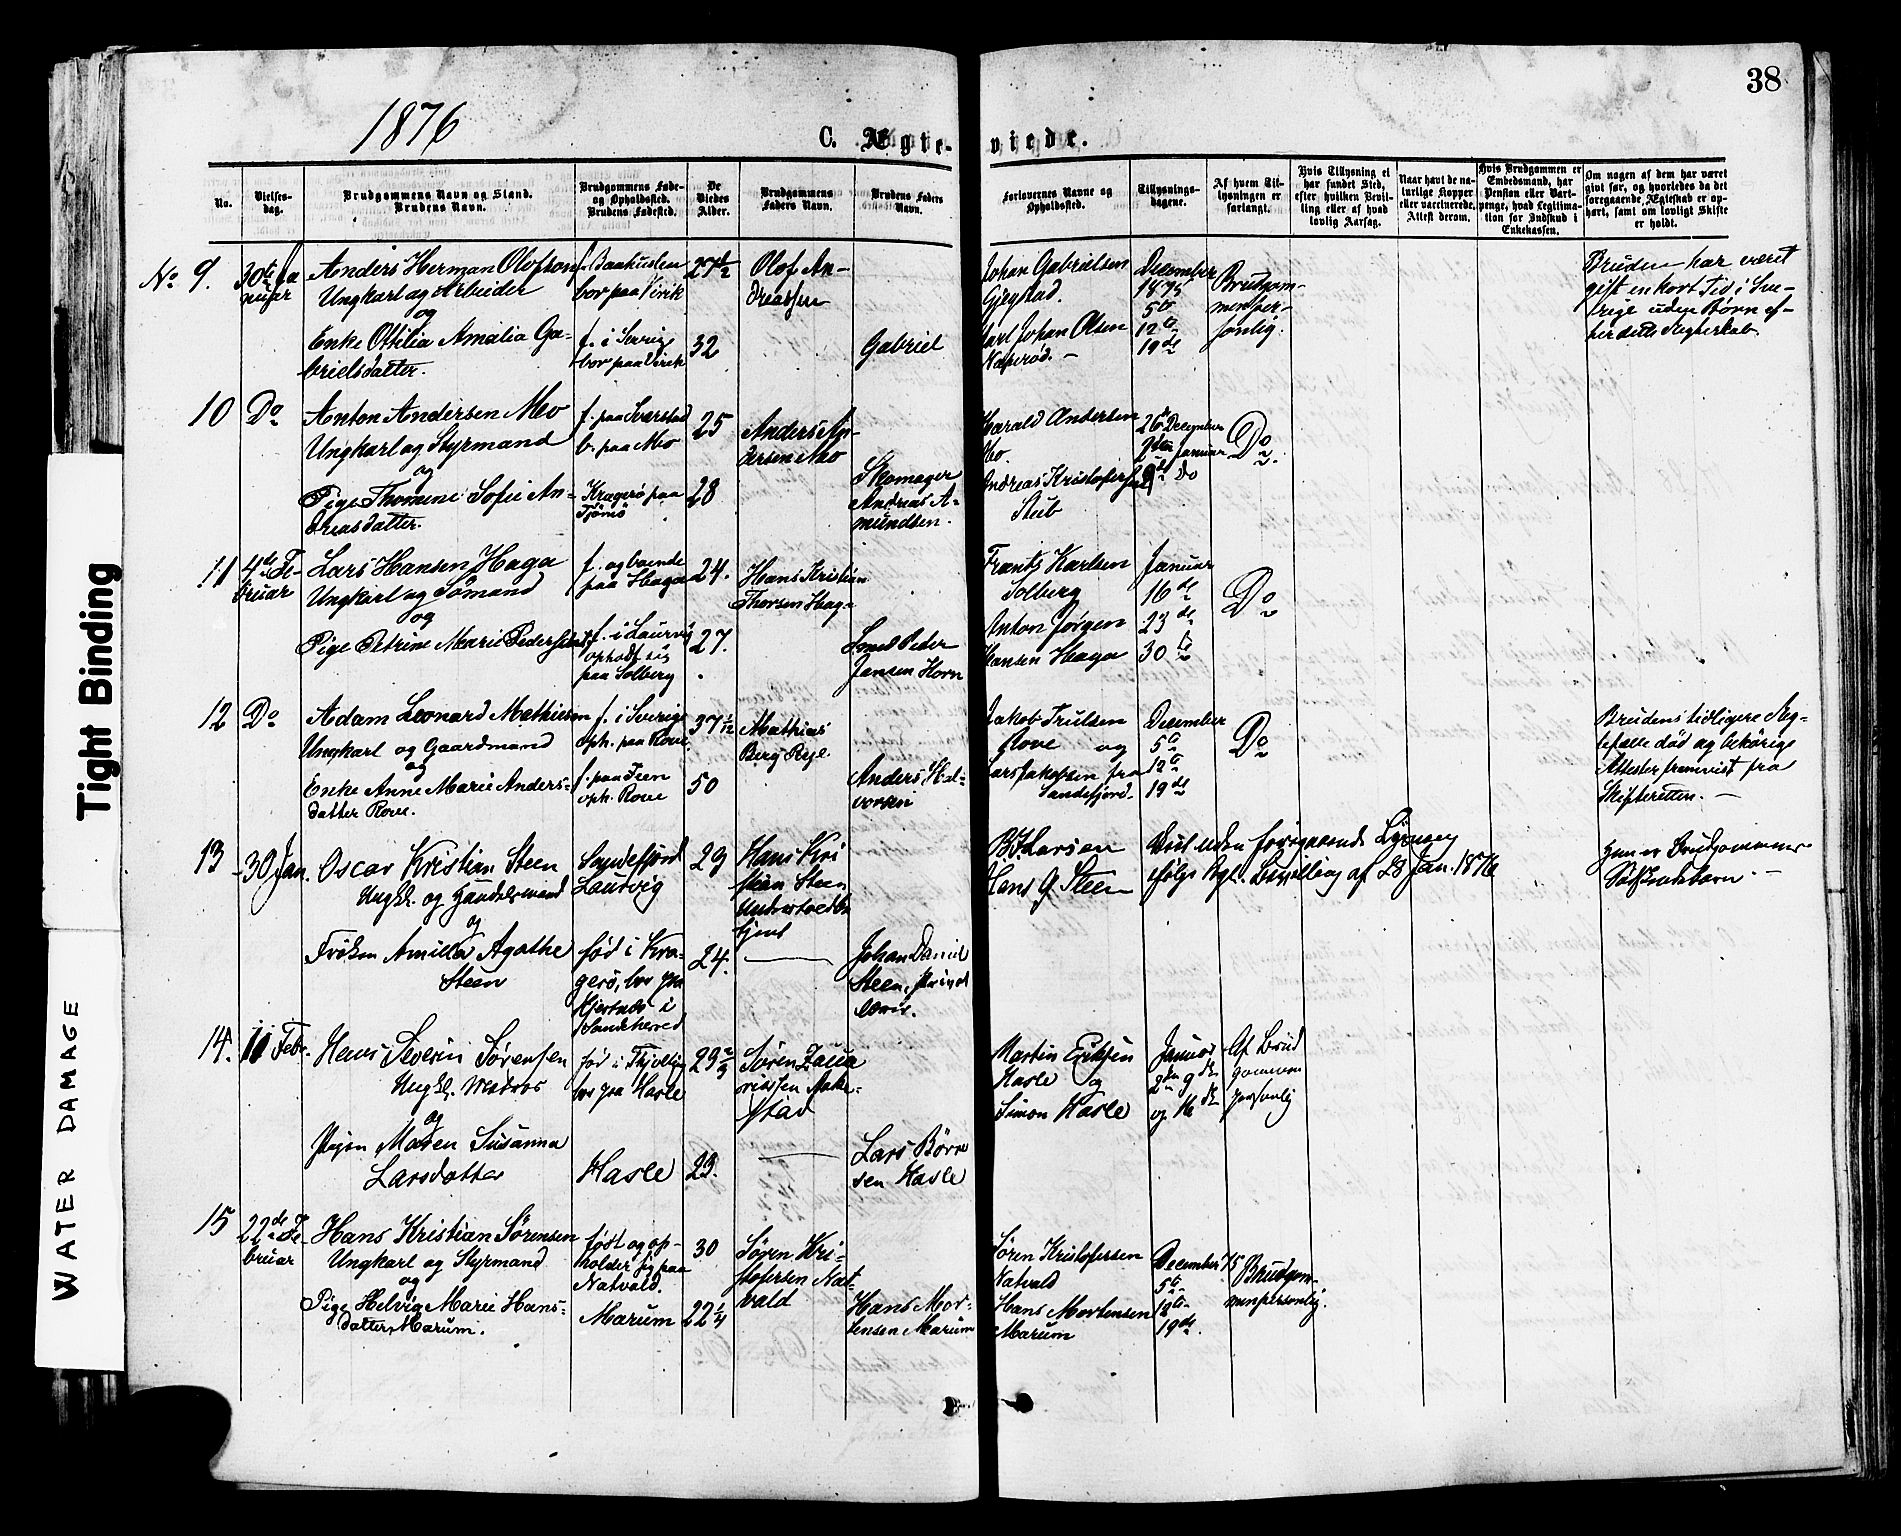 38
1876
C. Ægte-viede.
No.
Vielses-dag.
Brudgommens Navn og Stand.
Brudens Navn.
Brudgommens Føde- og Opholdssted.
Brudens Fødested.
De Viedes Alder.
Brudgommens Faders Navn.
Brudens Faders Navn.
Forlovernes Navne og Opholdssted.
Tillysnings-dagene.
Af hvem Til-lysningen er forlangt.
Hvis Tillysning ei har fundet Sted, efter hvilken Bevil-ling eller af hvad lovlig Aarsag.
Naar havt de na-turlige Kopper eller vaccinerede. Attest derom.
Hvis Brudgommen er Embedsmand, har Pension eller Vart-penge, hvad Legitima-tion for Indskud i Enkekassen.
Om nogen af dem har været givt før, og hvorledes da det foregaaende Ægteskab er op-hørt, samt om lovligt Skifte er holdt.
No 9. 30te Ja-nuar
Anders Herman Olofson
Ungkarl og Arbeider
og
Enke Ottilia Amalia Ga-
brielsdatter.
f. Baahuslen
bor paa Virik
f. i Sverige
bor paa Virik
27 1/2
32
Olof An-
dreassen
Gabriel
Johan Gabrielsen
Gjegstad.
Carl Johan Olsen
December
1875
5te
12te
19de
Brudgom-
men per-
sonlig.
Bruden har været
gift en kort Tid i Sve-
rige uden Børn ef-
ter dette Ægteskab.
10 Do
Anton Andersen Mo
Ungkarl og Styrmand
og
Pige Thomine Sofie An-
dreasdatter.
f. paa Svarstad
b. paa Mo
Kragerø paa
Tjømø
25
28
Anders An-
dersen Mo
Skomager
Andreas A-
mundsen.
Harald Andersen
Mo.
Andreas Kristofersen
Stub
26 December
2den Januar
9de Do
Do
11 4de Fe-
bruar
Lars Hansen Haga
Ungkarl og Sømand
og
Pige Petrine Marie Pedersdatter
f. og boende
paa Haga
f. i Laurvig
opholdt sig
paa Solberg
24.
27.
Hans Kristian
Thorsen Haga
Smed Peder
Jansen Horn
Frants Karlsen
Solberg
Anton Jørgen
Hansen Haga
Januar
16de
23de
30te
Do
12 Do
Adam Leonard Mathiesen
Ungkarl og Gaardmand
og
Enke Anne Marie Anders-
datter Rove.
f. i Sverige
oph. paa Rove.
f. paa Teen
oph. Rove
37 1/12
50
Mathias
Berg
Anders Hal-
vorsen
Jakob Trulsen
Rove og
Lars Jakobsen fra
Sandefjord.
December
5te
12te
19de
Do
Brudens tidligere Æg-
tefælle død og behørige
Attester fremvist fra
Skifteretten. —
13 30 Jan.
Oscar Kristian Steen
Ungk. og Handelsmand
og
Frøken Amilla Agathe
Steen
Sandefjord
Laurvig
født i Kra-
gerø, bor paa
Hjertnæs i
Sandeherred
29
24.
Hans Kri
stian Steen
—
Johan Daniel
Steen,
B. F. Larsen
Hans G. Steen
Viet uden foregaaende Lysning
ifølge Kgl. Bevilling af 28 Jan. 1876
Hun er Brudgommens
Søskendebarn. —
14. 11 Febr.
Hans Severin Sørensen
Ungk. Matros
og
Pigen Maren Susanna
Larsdatter
født i Tjølling
bor paa Hasle
Hasle
23.
Søren Zaca
riassen
—
Lars Børre
sen Hasle
Martin Eriksen
Hasle og
Simon Hasle
Januar
2den 9de
og 16de
Af Brud
gommen
personlig
15 22de Fe-
bruar
Hans Kristian Sørensen
Ungkarl og Styrmand
og
Pige Helvig Marie Hans-
datter, Marum.
født og op-
holder sig paa
Natvald.
Marum
30
22 1/4
Søren Kri-
stofersen Nat-
vald
Hans Mor-
tensen Marum
Søren Kristofersen
Natvald
Hans Mortensen
Marum
December 75
5te
12te
19de
Brudgom-
men personlig.
Tight Binding
WATER DAMAGE